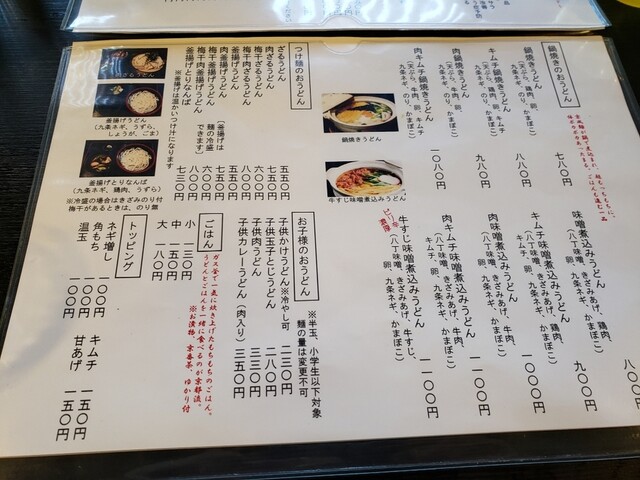 鍋焼きのおうどん
鍋焼きうどん
(天ぷら、鶏肉、卵、九条ネギ、のり、かまぼこ)
七八〇円
キムチ鍋焼きうどん
(天ぷら、鶏肉、卵、キムチ、九条ネギ、のり、かまぼこ)
八八〇円
肉鍋焼きうどん
(天ぷら、肉、卵、九条ネギ、のり、かまぼこ)
九八〇円
肉キムチ鍋焼きうどん
(天ぷら、肉、卵、キムチ、九条ネギ、のり、かまぼこ)
一〇八〇円
鍋焼きうどん
牛すじ味噌煮込みうどん
味噌煮込みうどん
(八丁味噌、きざみあげ、鶏肉、卵、九条ネギ、かまぼこ)
キムチ味噌煮込みうどん
(八丁味噌、きざみあげ、鶏肉、キムチ、卵、九条ネギ、かまぼこ)
九〇〇円
肉味噌煮込みうどん
(八丁味噌、きざみあげ、牛肉、卵、九条ネギ、かまぼこ)
一〇〇〇円
肉キムチ味噌煮込みうどん
(八丁味噌、きざみあげ、牛肉、キムチ、卵、九条ネギ、かまぼこ)
一一〇〇円
ピリ辛濃厚
牛すじ味噌煮込みうどん
(八丁味噌、きざみあげ、牛すじ、卵、九条ネギ、かまぼこ)
一一〇〇円
つけ麺のおうどん
ざるうどん 五五〇円
肉ざるうどん 七五〇円
梅干ざるうどん 六〇〇円
梅干肉ざるうどん 八〇〇円
釜揚げうどん 五五〇円
肉釜揚げうどん 七五〇円
梅干釜揚げうどん 六〇〇円
梅干肉釜揚げうどん 八〇〇円
釜揚げとりなんば 七三〇円
(釜揚げは麺の冷盛できます。)
※釜揚げは温かいつけ汁になります
ざるうどん
釜揚げうどん
(九条ネギ、うずら、しょうが、ごま)
釜揚げとりなんば
(九条ネギ、鶏肉、うずら)
※冷盛の場合はきざみのり付
梅干があるときは、のり無
お子様のおうどん
※半玉、小学生以下対象
麺の量は変更不可
子供かけうどん※冷やし可 二三〇円
子供玉子とじうどん 二八〇円
子供肉うどん 三三〇円
子供カレーうどん(肉入り) 三五〇円
ごはん
小 一三〇円
中 一五〇円
大 一八〇円
ガス釜で一気に炊き上げたもちもちのごはん。
うどんとごはんを一緒に食べるのが京都流。
※お漬物、京番茶、ゆかり付
トッピング
ネギ増し 一〇〇円
角もち 一〇〇円
温玉 一〇〇円
キムチ 一五〇円
甘あげ 一五〇円